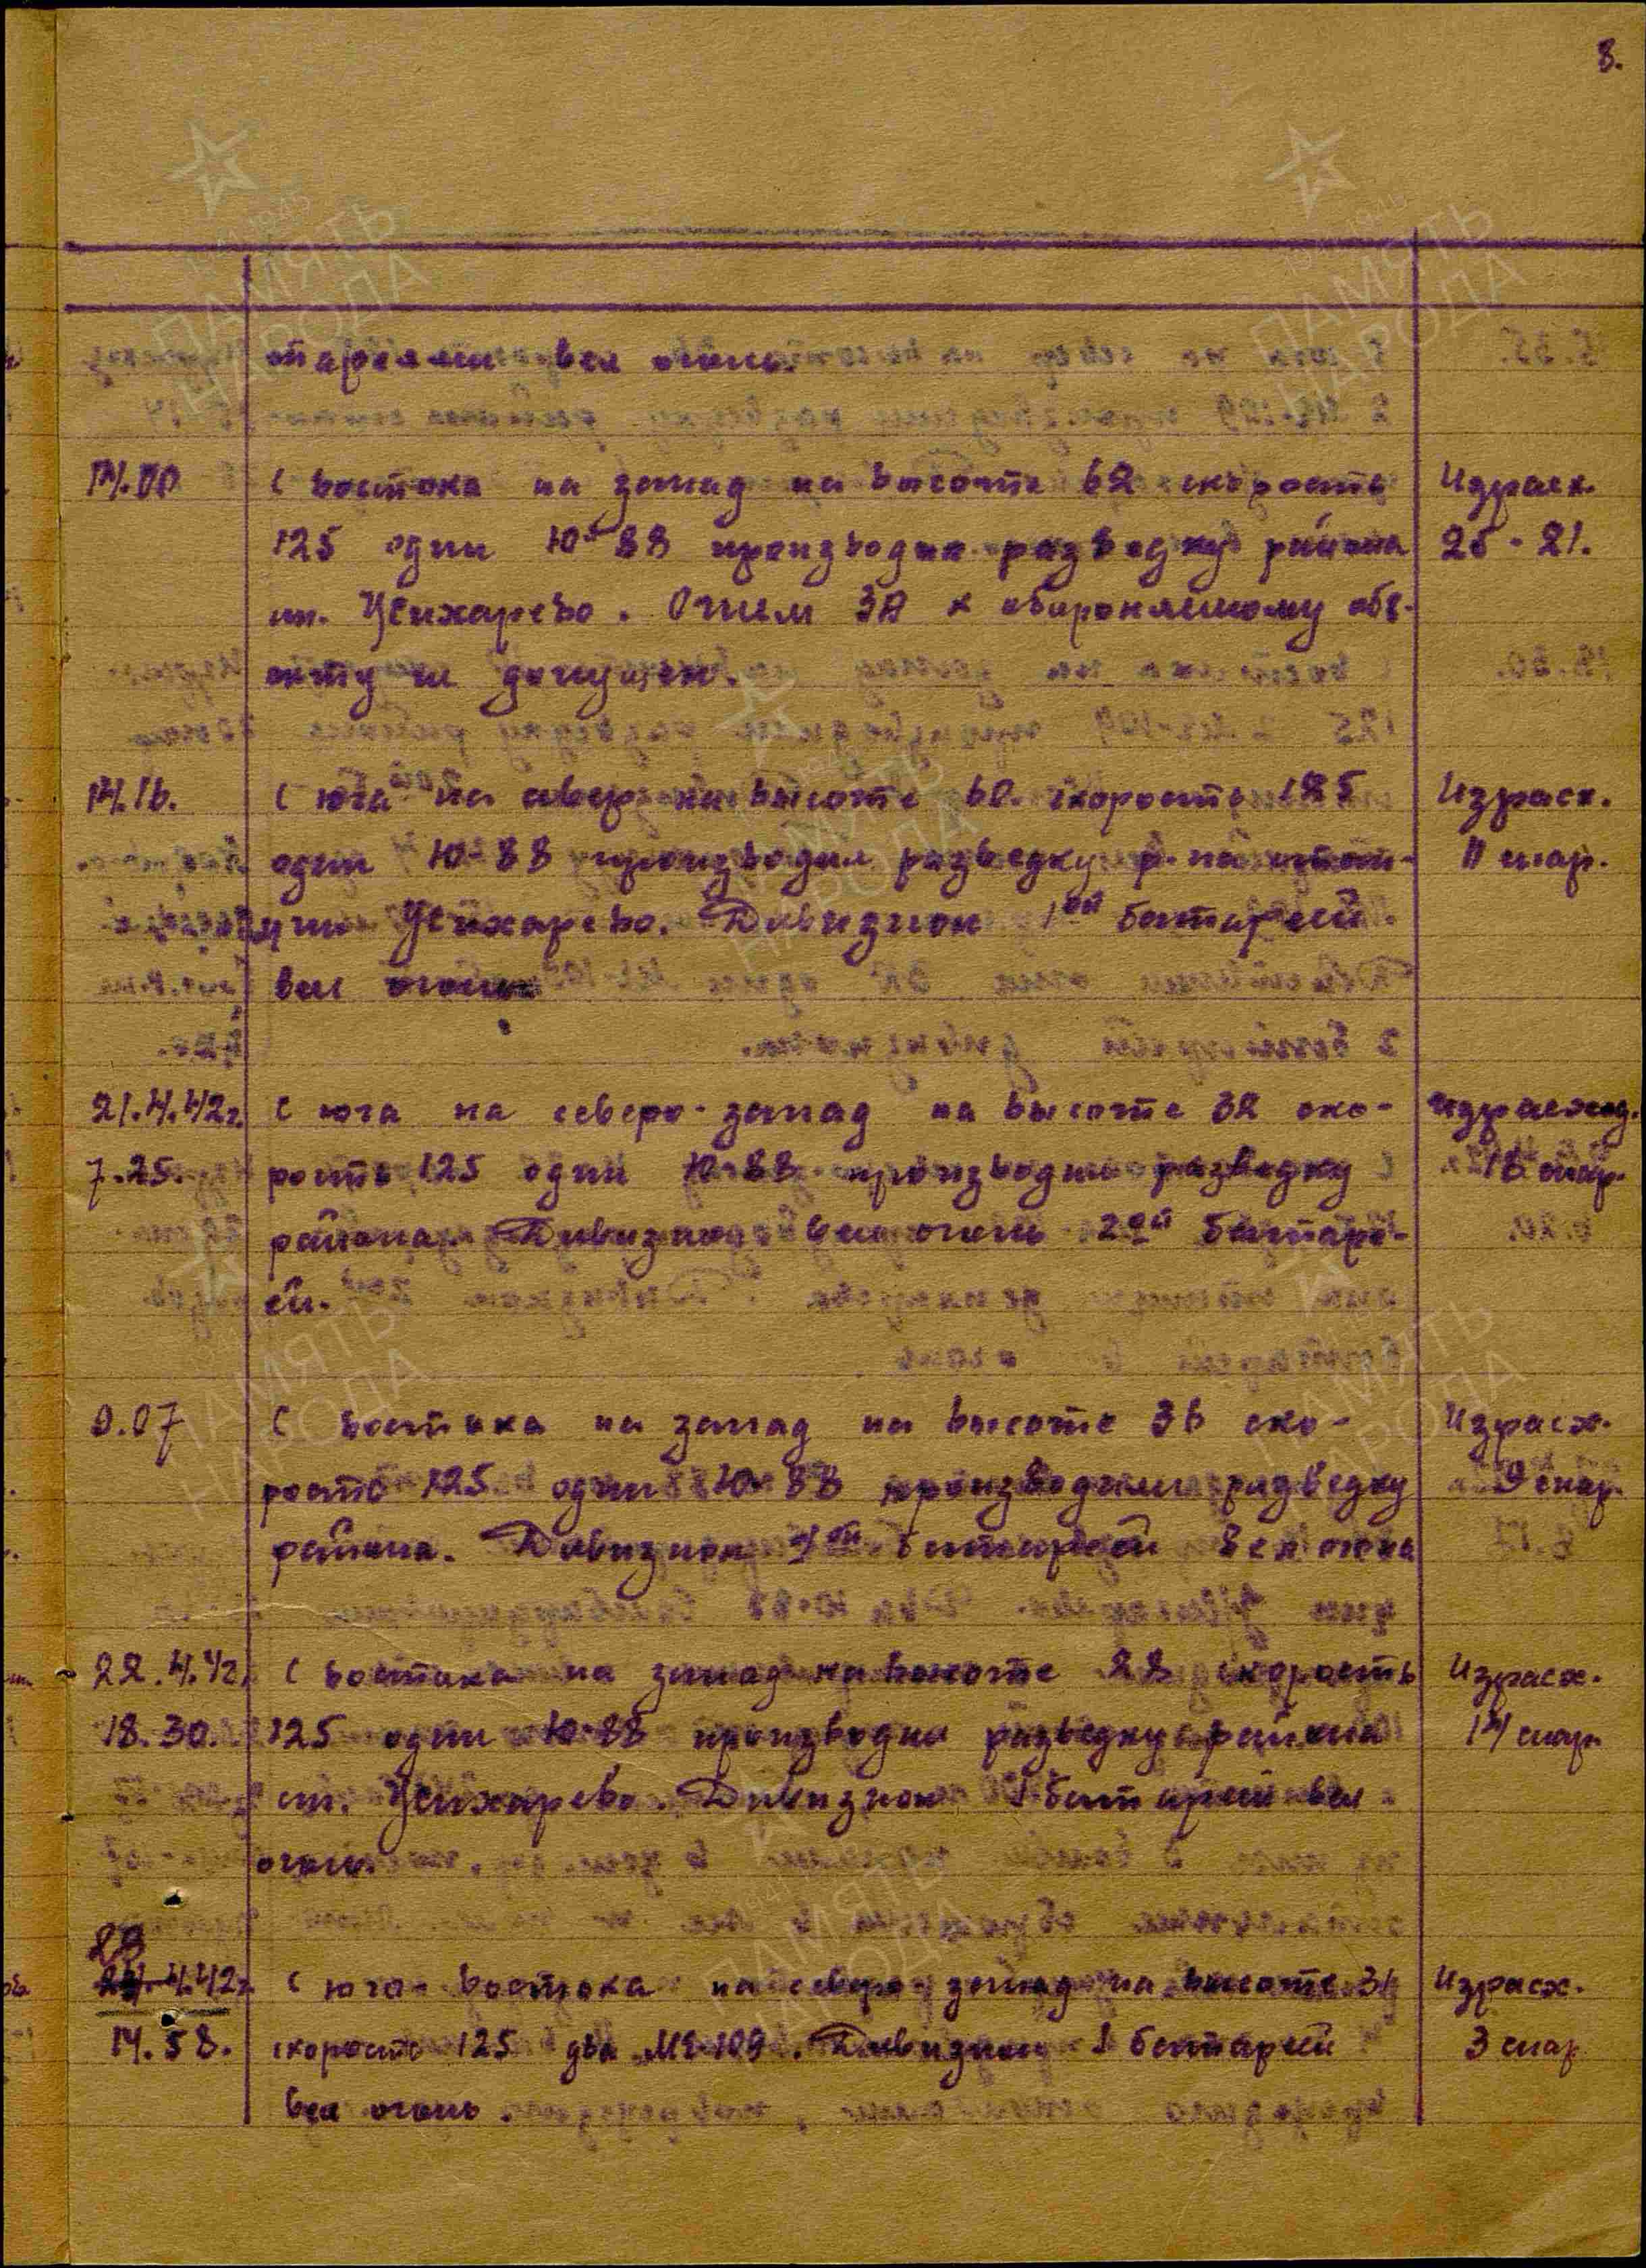 8.
тареями вел огонь.
14.00 С востока на запад на высоте 62 скорость Израсх.
125 один Ю-88 производил разведку района 25-21.
ст. Жихарево. Огнем ЗА к обороняемому объ-
екту не допущен.
14.16. С юга на север на высоте 60. скорость 125 Израсх.
один Ю-88 производил разведку р-на стан- 11 снар.
ции Жихарево. Дивизион 1ой батареей
вел огонь
21.4.42г. С юга на северо-запад на высоте 32 ско- Израсход.
7.25. рость 125 один Ю-88 производил разведку 16 снар.
района. Дивизион вел огонь 2ой батаре-
ей.
9.07 С востока на запад на высоте 36 ско- Израсх.
рость 125 один Ю-88 производил разведку 9 снар.
района. Дивизион ой батареей вел огонь
22.4.42. С востока на запад на высоте 28 скорость Израсх.
18.30. 125 один Ю-88 производил разведку района 14 снар.
ст. Жихарево. Дивизион 1 батареей вел
огонь.
28
4.42г. С юго-востока на северо-запад на высоте 31 Израсх.
14.58. скорость 125 два МЕ-109. Дивизион 1 батареей 3 снар
вел огонь.
ПАМЯТЬ
НАРОДА